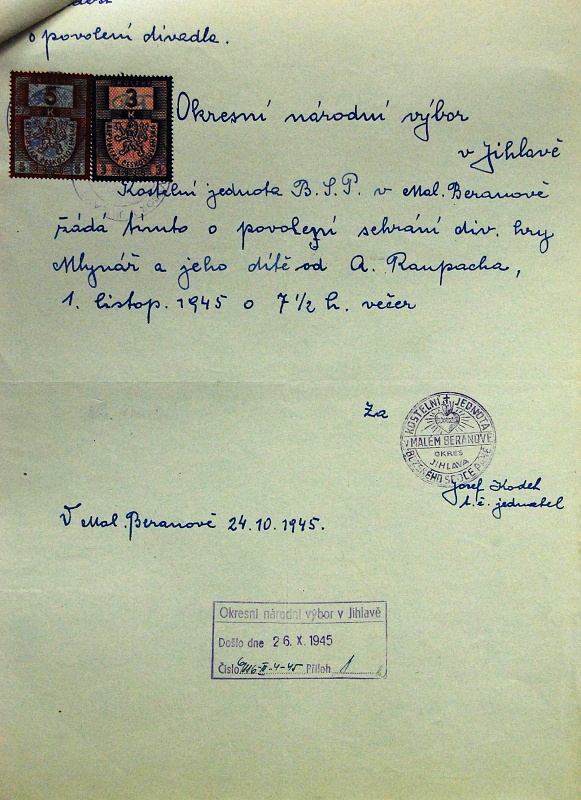 o povolení divadla.
5
K
3
K
Okresní národní výbor
v Jihlavě
Kostelní jednota B.S.P. v Mal. Beranově
žádá tímto o povolení sehrání div. hry
Mlynář a jeho dítě od A. Raupacha,
1. listop. 1945 o 7 1/2 h. večer
Za
KOSTELNÍ JEDNOTA
V MALÉM BERANOVĚ
OKRES
JIHLAVA
BOŽSKÉHO SRDCE PÁNĚ
Josef
t.č. jednatel
V Mal. Beranově 24.10.1945.
Okresní národní výbor v Jihlavě
Došlo dne 26. X. 1945
Číslo Příloh 1